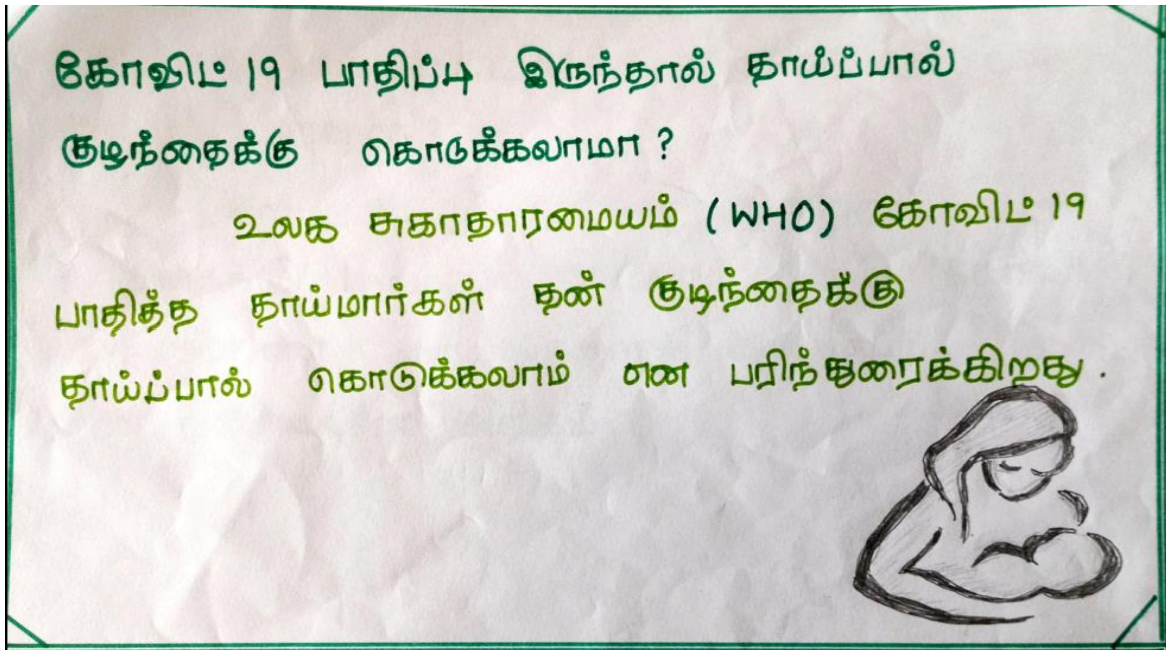 கோவிட் 19 பாதிப்பு இருந்தால் தாய்ப்பால்
குழந்தைக்கு கொடுக்கலாமா ?
உலக சுகாதாரமையம் (WHO) கோவிட் 19
பாதித்த தாய்மார்கள் தன் குழந்தைக்கு
தாய்ப்பால் கொடுக்கலாம் என பரிந்துரைக்கிறது .